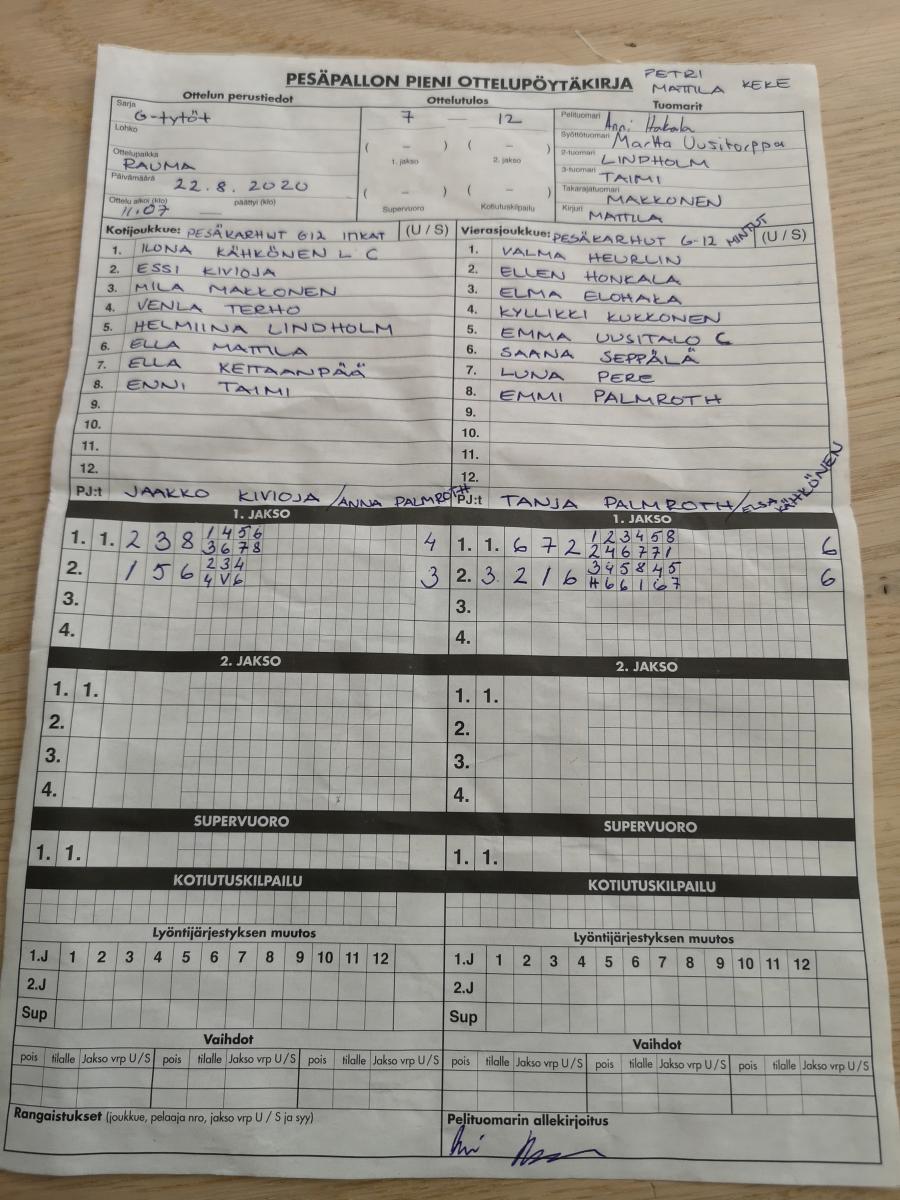 PESÄPALLON PIENI OTTELUPÖYTÄKIRJA
PETRI
MATTILA KEKE
Ottelun perustiedot
Ottelutulos
Tuomarit
Sarja
G-tytöt
Lohko
Ottelupaikka
RAUMA
Päivämäärä
22.8.2020
Ottelu alkoi (klo) päättyi (klo)
11.07 —
7 — 12
( – ) ( – )
1. jakso 2. jakso
( – ) ( – )
Supervuoro Kotiutuskilpailu
Pelituomari Anni Hakala
Syöttötuomari Martta Uusitorppa
2-tuomari LINDHOLM
3-tuomari TAIMI
Takarajatuomari MAKKONEN
Kirjuri MATTILA
Kotijoukkue: PESÄKARHUT G12 (U / S)
1. ILONA KÄHKÖNEN L C
2. ESSI KIVIOJA
3. MILA MAKKONEN
4. VENLA TERHO
5. HELMIINA LINDHOLM
6. ELLA MATTILA
7. ELLA KEITAANPÄÄ
8. ENNI TAIMI
9.
10.
11.
12.
PJ:t JAAKKO KIVIOJA / ANNA PALMROTH
Vierasjoukkue: PESÄKARHUT G-12 MINTUT (U / S)
1. VALMA HEURLIN
2. ELLEN HONKALA
3. ELMA ELOHAKA
4. KYLLIKKI KUKKONEN
5. EMMA UUSITALO C
6. SAANA SEPPÄLÄ
7. LUNA PERE
8. EMMI PALMROTH
9.
10.
11.
12.
PJ:t TANJA PALMROTH / ELSA KÄHKÖNEN
1. JAKSO
1. 1. 2 3 8 1 4 5 6 4
3 6 7 8
2. 1 5 6 2 3 4 3
4 V 6
3.
4.
1. JAKSO
1. 1. 6 7 2 1 2 3 4 5 8 6
2 4 6 7 7 1
2. 3. 2 1 6 3 4 5 8 4 5 6
H 6 6 1 6 7
3.
4.
2. JAKSO
1. 1.
2.
3.
4.
2. JAKSO
1. 1.
2.
3.
4.
SUPERVUORO
1. 1.
SUPERVUORO
1. 1.
KOTIUTUSKILPAILU
KOTIUTUSKILPAILU
Lyöntijärjestyksen muutos
1.J 1 2 3 4 5 6 7 8 9 10 11 12
2.J
Sup
Lyöntijärjestyksen muutos
1.J 1 2 3 4 5 6 7 8 9 10 11 12
2.J
Sup
Vaihdot
pois tilalle Jakso vrp U / S pois tilalle Jakso vrp U / S pois tilalle Jakso vrp U / S
Vaihdot
pois tilalle Jakso vrp U / S pois tilalle Jakso vrp U / S pois tilalle Jakso vrp U / S
Rangaistukset (joukkue, pelaaja nro, jakso vrp U / S ja syy)
Pelituomarin allekirjoitus